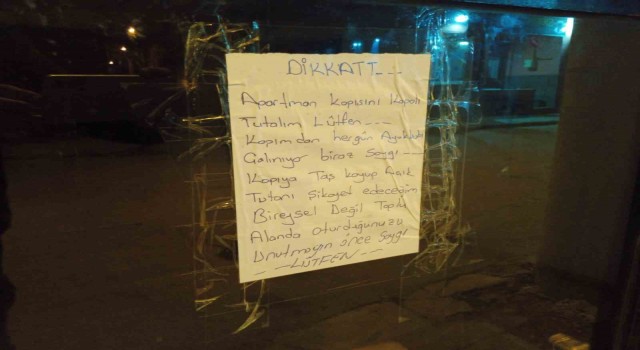 DİKKATT---
Apartman kapısını kapalı
Tutalım Lütfen---
Kapımdan hergün Ayakkabı
Çalınıyor biraz Saygı---
Kapıya Taş koyup Açık
Tutanı Şikayet edeceğim
Bireysel Değil Toplu
Alanda oturduğunuzu
Unutmayın önce Saygı
--LÜTFEN--